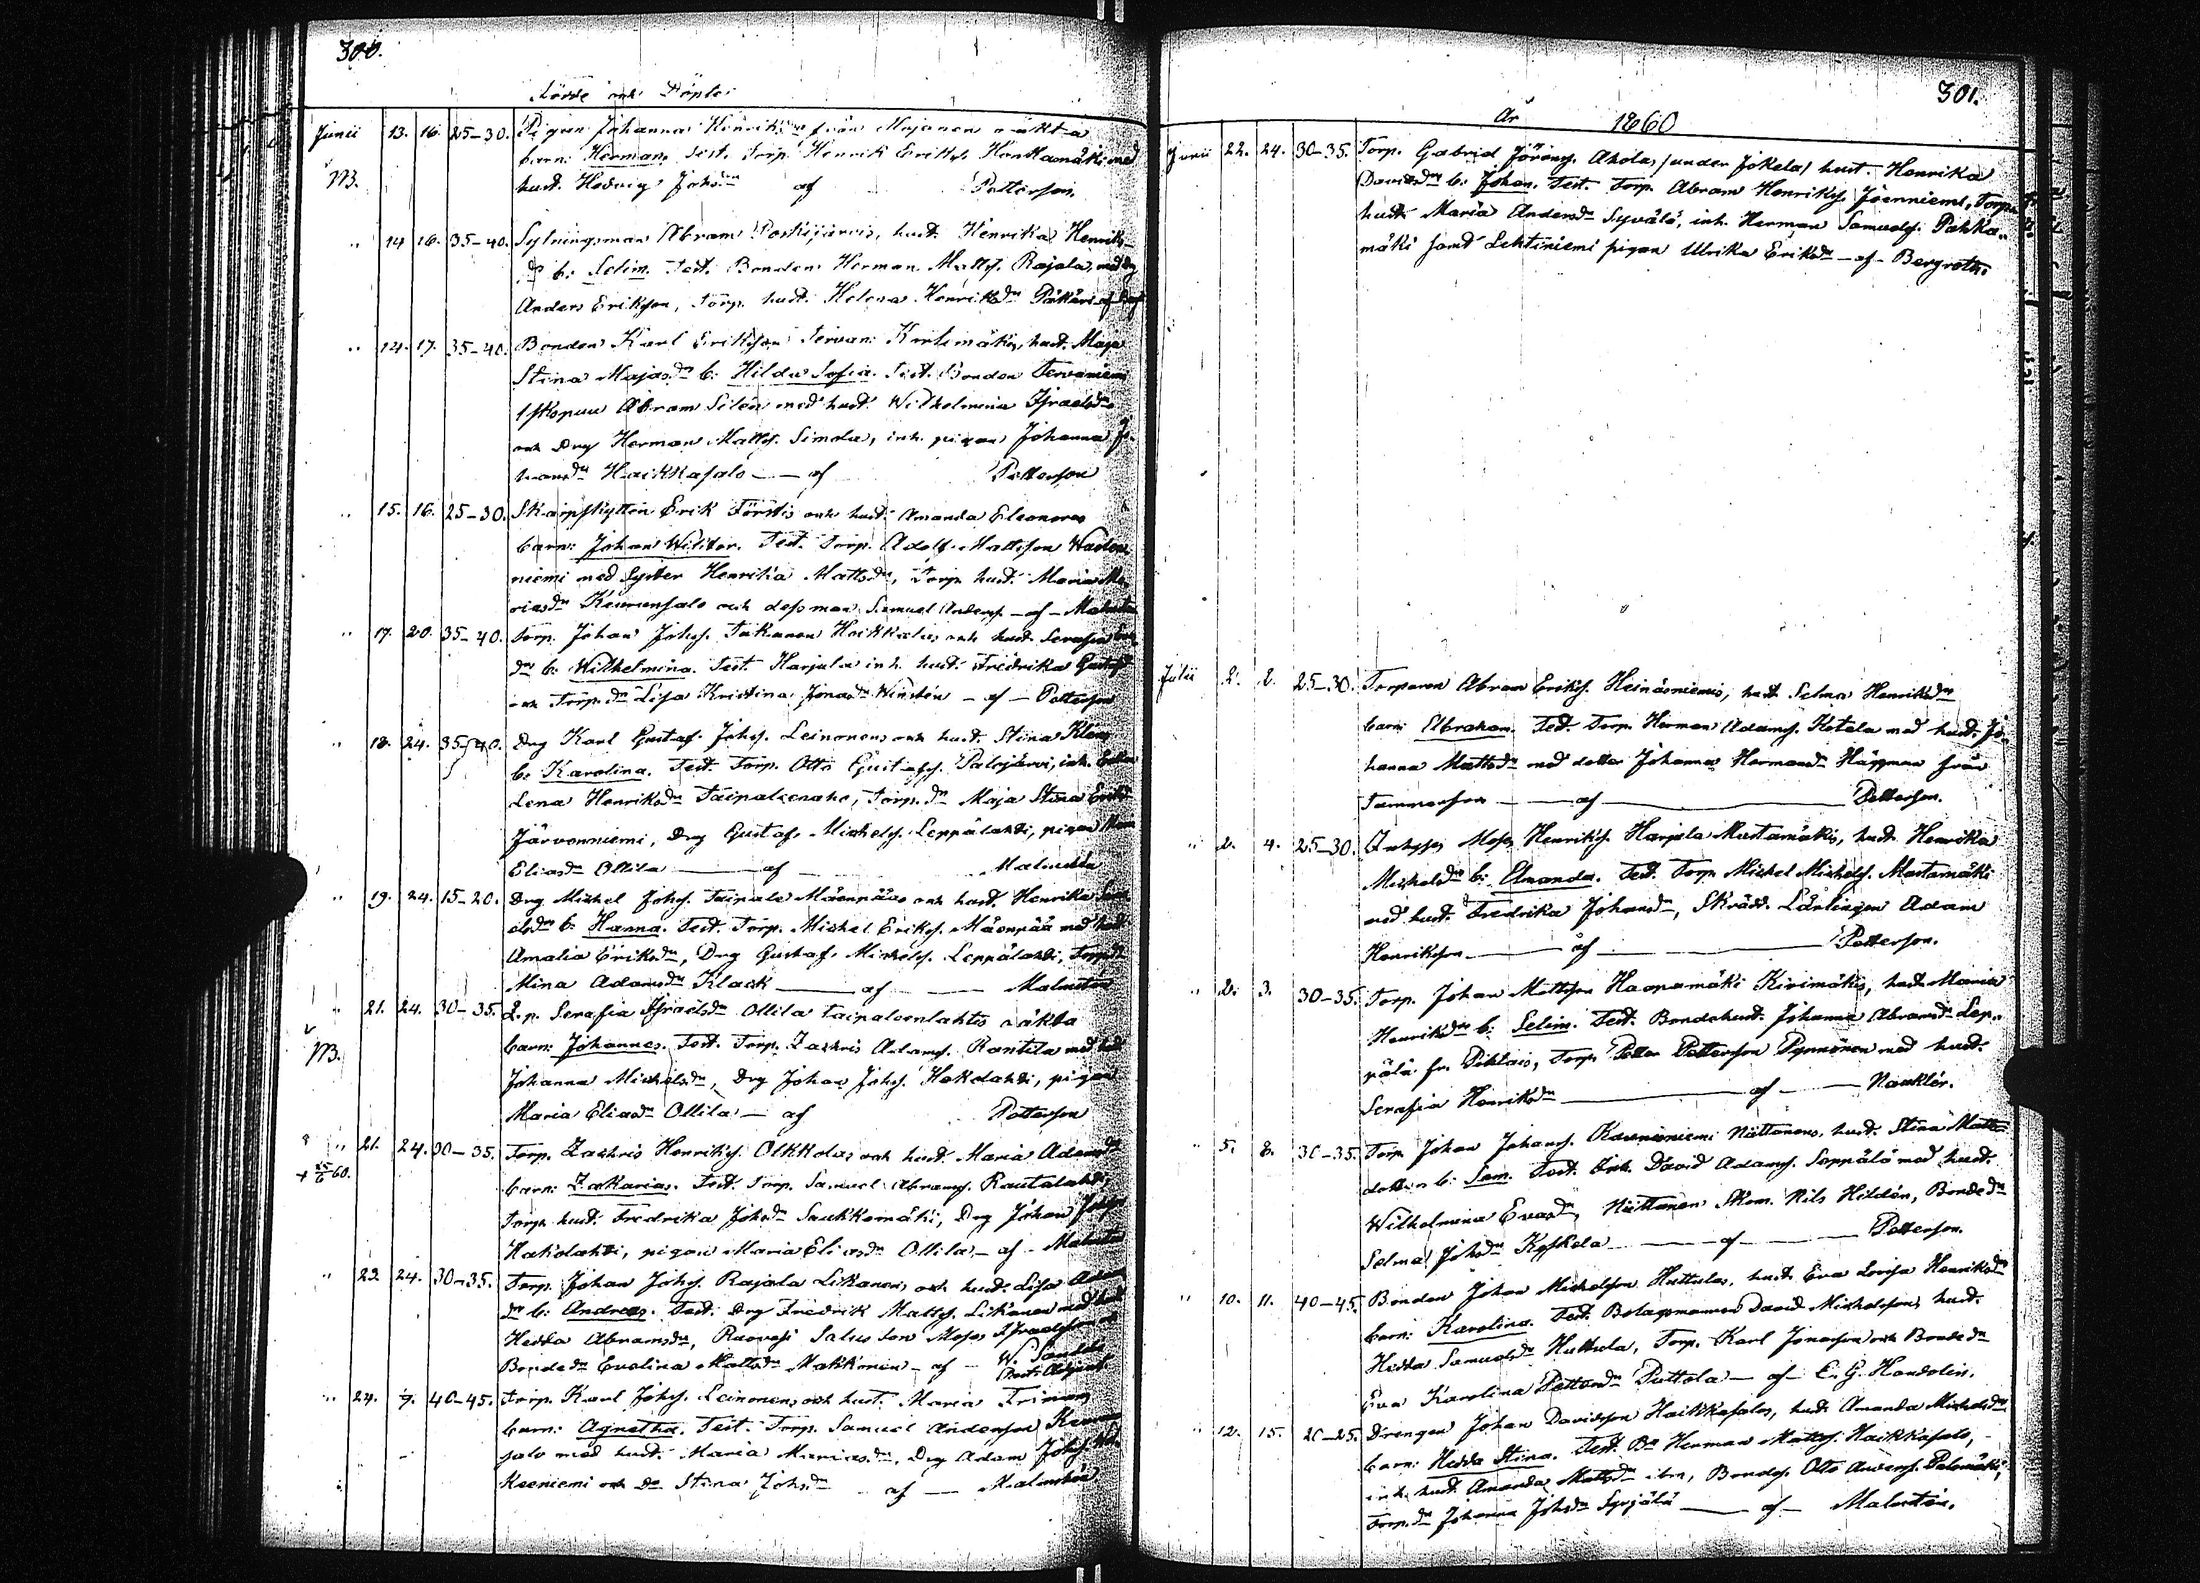 300.
Födde och Döpte
Junii 13. 16. 25-30. Pigan Johanna Henriksdn från Mojanen oäkta
barn: Herman. Test. Torp. Henrik Erikss. Honkamäki med
M. hust. Hedvig Johsdn af Petterson.
" 14 16. 35-40. Sytningsman Abram Poskijärvis, hust. Henrika Henriks
dn b: Selim. Test. Bonden Herman Matts. Rajala, med
Anders Erikson, Torp. hust. Helena Henriksdn
" 14. 17. 35-40. Bonden Karl Erikson hust. Maja
Stina Majasdn b: Hilda Sofia. Test. Bonden
Abram Silén med hust. Wilhelmina Israelsdn
och Drng Herman Matts. Simola, inh. pigan Johanna Jo-
hansdn Haikkasalo — af Petterson
" 15. 16. 25-30. Skarpskytten Erik Förstis och hust. Amanda Eleonoras
barn: Johan Wiktor. Test. Torp. Adolf Mattson
niemi med Syster Henrika Mattsdn, Torp. hust. Maria Ma-
riasdn Keurunsalo och dess man Samuel Anders. - af - Malmstén
" 17. 20. 35-40. Torp. Johan Johs. Tukanen Haikkalas och hust. Serafia
dn b: Wilhelmina. Test. Harjula inh. hust. Fredrika Gustafsd
och Torp.dn Lisa Kristina Jonasdn Winstén - af - Petterson
" 18. 24. 35-40. Drng Karl Gustaf Johs. Leinonens och hust. Stina Klara
b: Karolina. Test. Torp. Otto Gustafss. Palojärvi, inh.
Lena Henriksdn Taipaleenaho, Torp.dn Maja Stina Eriksd
Järvenniemi, Drng Gustaf Michelss. Leppälahti, pigan
Eliasdn Ollila — af — Malmstén
" 19. 24. 15-20. Drng Michel Johs. Taipale Mäenpääs och hust. Henrika
elsdn b: Hanna. Test. Torp. Michel Erikss. Mäenpää med hust
Amalia Eriksdn, Drng Gustaf Michelss. Leppälahti, Torp.dn
Mina Adamsdn Klack — af — Malmstén
" 21. 24. 30-35. Q.p. Serafia Israelsdn Ollila Taipaleenlahtis oäkta
M. barn: Johannes. Test. Torp. Zachris Adams. Rantila med hust
Johanna Michelsdn, Drng Johan Johs. Hakolahti, pigan
Maria Eliasdn Ollila — af Petterson
" 21. 24. 30-35. Torp. Zachris Henrikss. Olkkolas och hust. Maria Adamsdn
+ 25/6 60. barn: Zakarias. Test. Torp. Samuel Abrams. Rautalahti,
Torp. hust. Fredrika Johsdn Saukkomäki, Drng Johan Johs
Hakolahti, pigan Maria Eliasdn Ollila - af - Malmstén
" 23. 24. 30-35. Torp. Johan Johs. Rajala Likanens och hust. Lisa
dn b: Andreas. Test. Drng Fredrik Matts. Likanen med hust
Hedda Abramsdn, Salus son Moses Israelsson
Bonde dn Evelina Mattsdn Makkonen - af -
" 24. 7. 40-45. Torp. Karl Johs. Leinonens och hust. Maria
barn: Agnetha. Test. Torp. Samuel Anderson
salo med hust. Maria Mariasdn, Drng Adam Johs.
niemi och Dn Stina Johsdn af — Malmstén
301.
År 1860
Junii 22. 24. 30-35. Torp. Gabriel Jörans. Aholas /under Jokela/ hust. Henrika
Davidsdn b: Johan. Test. Torp. Abram Henrikss. Joenniemi, Torp.
hust. Maria Andersdn Syvälä, inh. Herman Samuelss. Pahka-
mäki samt Lehtiniemi pigan Ulrika Eriksdn — af — Bergroth.
Julii 2. 2. 25-30. Torparen Abram Erikss. Heinäsniemis, hust. Selma Henriksdn
barn: Abraham. Test. Torp. Herman Adams. Ketola med hust. Jo-
hanna Mattsdn med dotter Johanna Hermansdn Häggman från
Tammerfors — af — Petterson.
" 2. 4. 25-30. Moses Henrikss. Harjula Mustamäkis, hust. Henrika
Michelsdn b: Amanda. Test. Torp. Michel Michelss. Mustamäki
med hust. Fredrika Johansdn, Skrädd. Lärlingen Adam
Henrikson — af — Petterson.
" 2. 3. 30-35. Torp. Johan Mattson Haapamäki Kivimäkis, hust. Maria
Henriksdn b: Selim. Test. Bondehust. Johanna Abramsdn Lep-
pälä fr. Pihlais, Torp. Petter Petterson Pynnönen med hust.
Serafia Henriksdn — af — Nauklér.
" 5. 8. 30-35. Torp. Johan Johans. Kauniniemi Nättanens, hust. Stina Matts
dotters b: Sam. Test. Inh. David Adams. Seppälä med hust.
Wilhelmina Evasdn, Nättanen Skom. Nils Hildén, Bonde dn
Selma Johsdn Kyskola — af — Petterson.
" 10. 11. 40-45. Bonden Johan Michelson Huttulas, hust. Eva Lovisa Henriksdn
barn: Karolina. Test. Bolagsmannen David Michelsons hust.
Hedda Samuelsdn Huttula, Torp. Karl Jonasson och Bonde dn
Eva Karolina Pettersdn Puttola — af — E. G. Handolin.
" 12. 15. 20-25. Drengen Johan Davidson Haikkasalos, hust. Amanda Michelsdn
barn: Hedda Stina. Test. Bn Herman Matts. Haikkasalo,
inh. hust. Amanda Mattsdn ibm, Bondes. Otto Anders. Palomäki,
Torp.dn Johanna Johsdn Syrjälä — af — Malmstén.